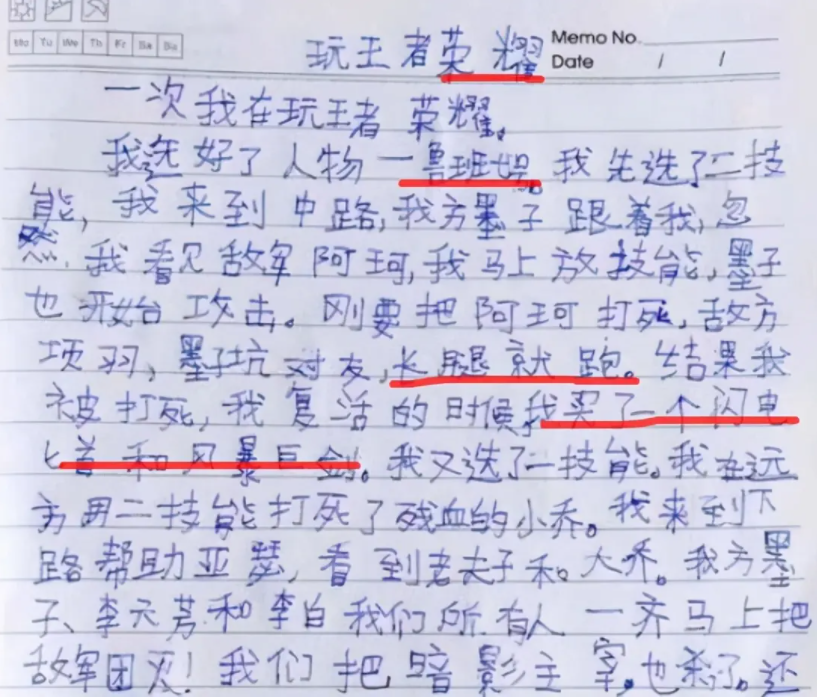 Mo Tu We Th Fr Sa Su
Memo No.
Date / /
玩王者荣耀
一次我在玩王者荣耀。
我选好了人物一鲁班,我先选了二技
能,我来到中路,我方墨子跟着我,忽
然,我看见敌军阿珂,我马上放技能,墨子
也开始攻击。刚要把阿珂打死,敌方
项羽,墨子坑对友,长腿就跑。结果我
被打死,我复活的时候我买了一个闪电
匕首和风暴巨剑。我又选了二技能。我在远
方用二技能打死了残血的小乔。我来到下
路帮助亚瑟,看到老夫子和大乔。我方墨
子、李元芳和李白我们所有人一齐马上把
敌军团灭!我们把暗影主宰也杀了。还